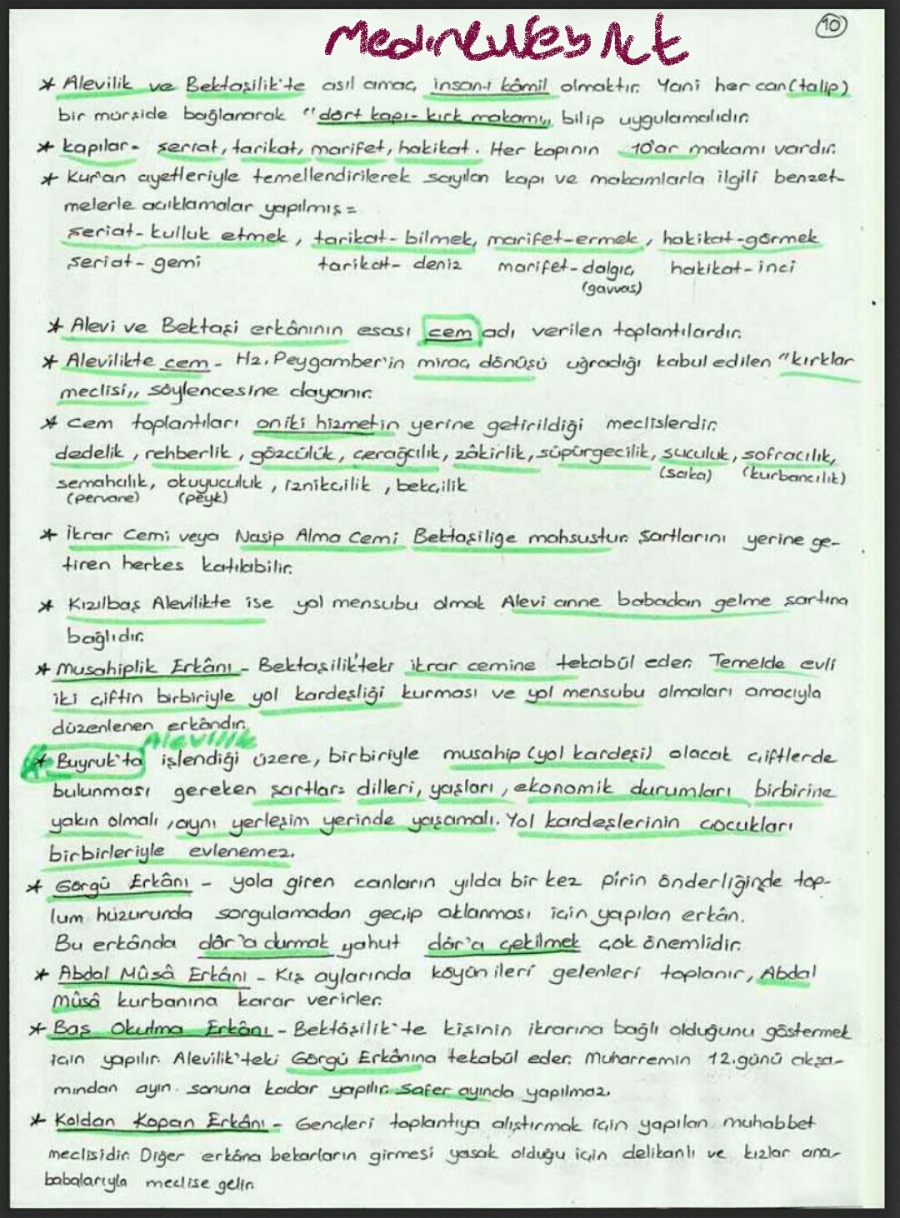 medineweb Net
10
* Alevilik ve Bektaşilik'te asıl amaç insan-ı kâmil olmaktır. Yani her can (talip)
bir mürşide bağlanarak "dört kapı-kırk makamı,, bilip uygulamalıdır.
* kapılar= şeriat, tarikat, marifet, hakikat. Her kapının 10'ar makamı vardır.
* Kur'an ayetleriyle temellendirilerek sayılan kapı ve makamlarla ilgili benzet-
melerle açıklamalar yapılmış =
şeriat-kulluk etmek, tarikat-bilmek, marifet-ermek, hakikat-görmek
şeriat-gemi tarikat-deniz marifet-dalgıç hakikat-inci
(gavvas)
* Alevi ve Bektaşi erkânının esası cem adı verilen toplantılardır.
* Alevilikte cem - Hz. Peygamber'in miraç dönüşü uğradığı kabul edilen "kırklar
meclisi,, söylencesine dayanır.
* Cem toplantıları oniki hizmetin yerine getirildiği meclislerdir.
dedelik, rehberlik, gözcülük, çerağcılık, zâkirlik, süpürgecilik, suculuk, sofracılık,
(saka) (kurbancılık)
semahcılık, okuyuculuk, iznikcilik, bekcilik
(pervane) (peyk)
* İkrar Cemi veya Nasip Alma Cemi Bektaşiliğe mahsustur. Şartlarını yerine ge-
tiren herkes katılabilir.
* Kızılbaş Alevilikte ise yol mensubu olmak Alevi anne babadan gelme şartına
bağlıdır.
* Musahiplik Erkânı - Bektaşilik'teki ikrar cemine tekabül eder. Temelde evli
iki çiftin birbiriyle yol kardeşliği kurması ve yol mensubu olmaları amacıyla
düzenlenen erkândır.
Alevilik
* Buyruk'ta işlendiği üzere, birbiriyle musahip (yol kardeşi) olacak çiftlerde
bulunması gereken şartlar= dilleri, yaşları, ekonomik durumları birbirine
yakın olmalı, aynı yerleşim yerinde yaşamalı. Yol kardeşlerinin çocukları
birbirleriyle evlenemez.
* Görgü Erkânı - yola giren canların yılda bir kez pirin önderliğinde top-
lum huzurunda sorgulamadan geçip aklanması için yapılan erkân.
Bu erkânda dâr'a durmak yahut dâr'a çekilmek çok önemlidir.
* Abdal Mûsâ Erkânı - Kış aylarında köyün ileri gelenleri toplanır, Abdal
Mûsâ kurbanına karar verirler.
* Baş Okutma Erkânı - Bektâşilik'te kişinin ikrarına bağlı olduğunu göstermek
için yapılır. Alevilik'teki Görgü Erkânına tekabül eder. Muharremin 12. günü akşa-
mından ayın sonuna kadar yapılır. Safer ayında yapılmaz.
* Koldan Kopan Erkânı - Gençleri toplantıya alıştırmak için yapılan muhabbet
meclisidir. Diğer erkâna bekarların girmesi yasak olduğu için delikanlı ve kızlar ana-
babalarıyla meclise gelir.